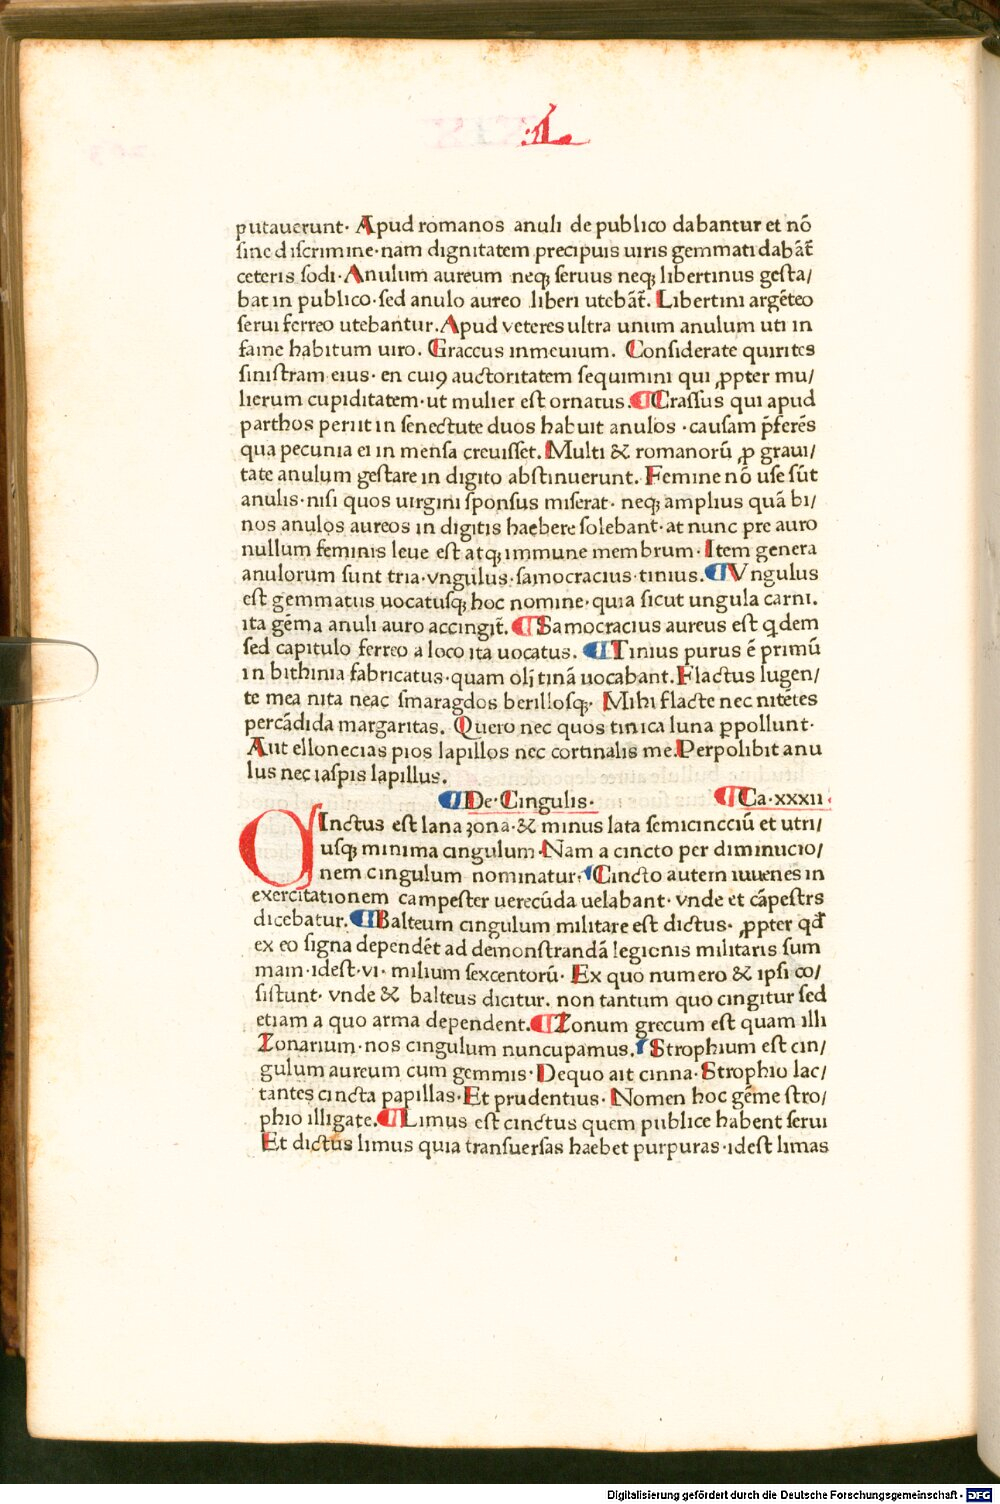 .L
putauerunt· Apud romanos anuli de publico dabantur et nō
ſine diſcrimine·nam dignitatem precipuis uiris gemmati dabāt̄
ceteris ſodi·Anulum aureum neqꝫ ſeruus neqꝫ libertinus geſta/
bat in publico·ſed anulo aureo liberi utebāt̄. Libertini argēteo
ſerui ferreo utebantur. Apud veteres ultra unum anulum uti in
fame habitum uiro. Graccus inmeuium. Conſiderate quirites
ſiniſtram eius· en cuiꝯ auctoritatem ſequimini qui ꝓpter mu/
lierum cupiditatem·ut mulier eſt ornatus.¶Craſſus qui apud
parthos periit in ſenectute duos habuit anulos ·cauſam p̄ferēs
qua pecunia ei in menſa creuiſſet. Multi & romanorū ꝓ graui/
tate anulum geſtare in digito abſtinuerunt. Femine nō uſe ſūt
anulis·niſi quos uirgini ſponſus miſerat· neqꝫ amplius quā bi/
nos anulos aureos in digitis haebere ſolebant·at nunc pre auro
nullum feminis leue eſt atqꝫ immune membrum· Item genera
anulorum ſunt tria·vngulus·ſamocracius·tinius.¶Vngulus
eſt gemmatus uocatuſqꝫ hoc nomine·quia ſicut ungula carni.
ita gēma anuli auro accingit̄. ¶Samocracius aureus eſt qdem
ſed capitulo ferreo a loco ita uocatus. ¶Tinius purus ē primū
in bithinia fabricatus·quam olī tinā uocabant. Flactus lugen/
te mea nita neac ſmaragdos berilloſqꝫ· Mihi flacte nec nitētes
percādida margaritas. Quero nec quos tinica luna ꝑpollunt·
Aut ellonecias pios lapillos nec cortinalis me.Perpolibit anu
lus nec iaſpis lapillus.
¶De·Cingulis· ¶Ca·xxxii·
CInctus eſt lana ʒona·& minus lata ſemicincciū et utri/
uſqꝫ minima cingulum·Nam a cincto per diminucio/
nem cingulum nominatur·Cincto autem iuuenes in
exercitationem campeſter uerecūda uelabant· vnde et cāpeſtrs
dicebatur.¶Balteum cingulum militare eſt dictus· ꝓpter qđ
ex eo ſigna dependēt ad demonſtrandā legionis militaris ſum
mam·ideſt·vi· milium ſexcentorū· Ex quo numero & ipſi co/
ſiſtunt· vnde & balteus dicitur. non tantum quo cingitur ſed
etiam a quo arma dependent.¶Zonum grecum eſt quam illi
Zonarium·nos cingulum nuncupamus. Strophium eſt cin/
gulum aureum cum gemmis·Dequo ait cinna·Strophio lac/
tantes cincta papillas·Et prudentius· Nomen hoc gēme ſtro/
phio illigate.¶Limus eſt cinctus quem publice habent ſerui
Et dictus limus quia tranſuerſas haebet purpuras·ideſt limas
Digitalisierung gefördert durch die Deutsche Forschungsgemeinschaft - DFG